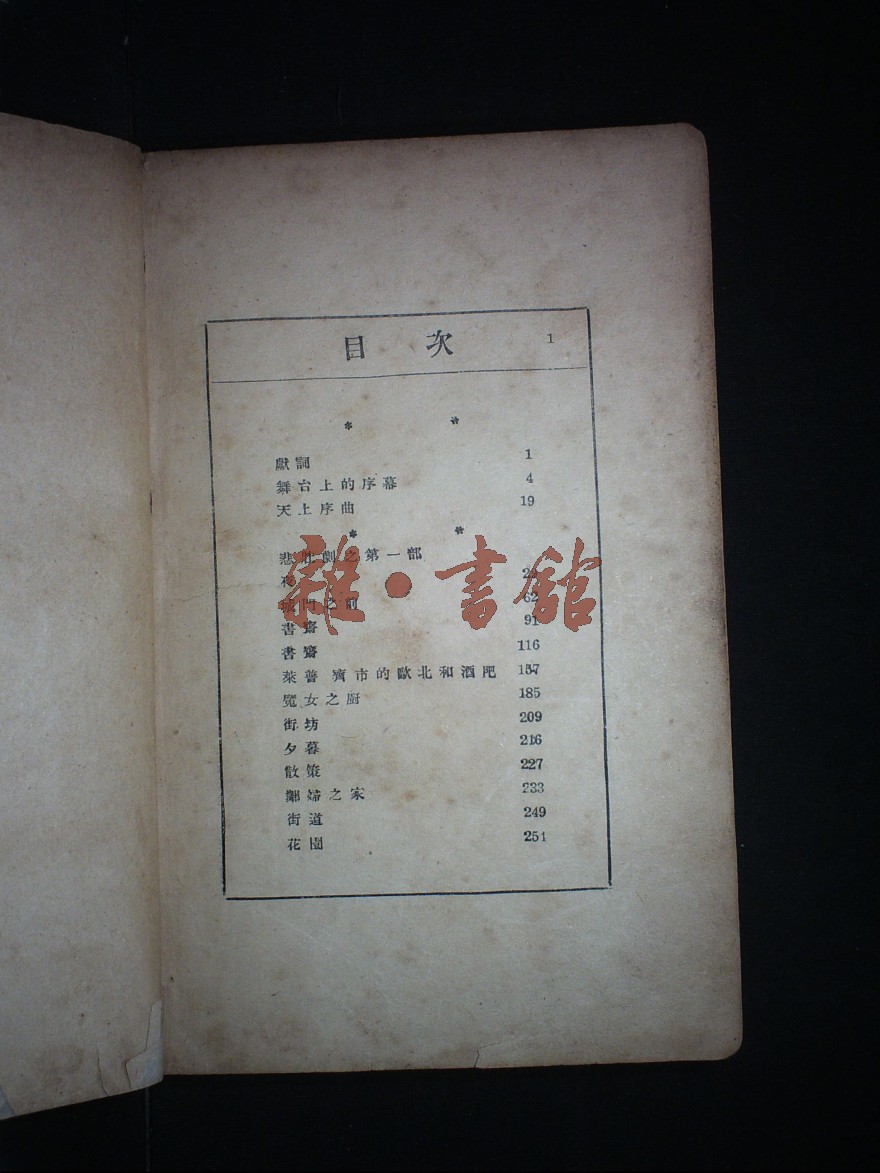 目次 1
* *
獻詞 1
舞台上的序幕 4
天上序曲 19
* *
悲壯劇之第一部
夜
城門之前 62
書齋 91
書齋 116
萊普齊市的歐北和酒肥 157
魔女之廚 185
街坊 209
夕暮 216
散策 227
鄰婦之家 233
街道 249
花園 251
雜·書館